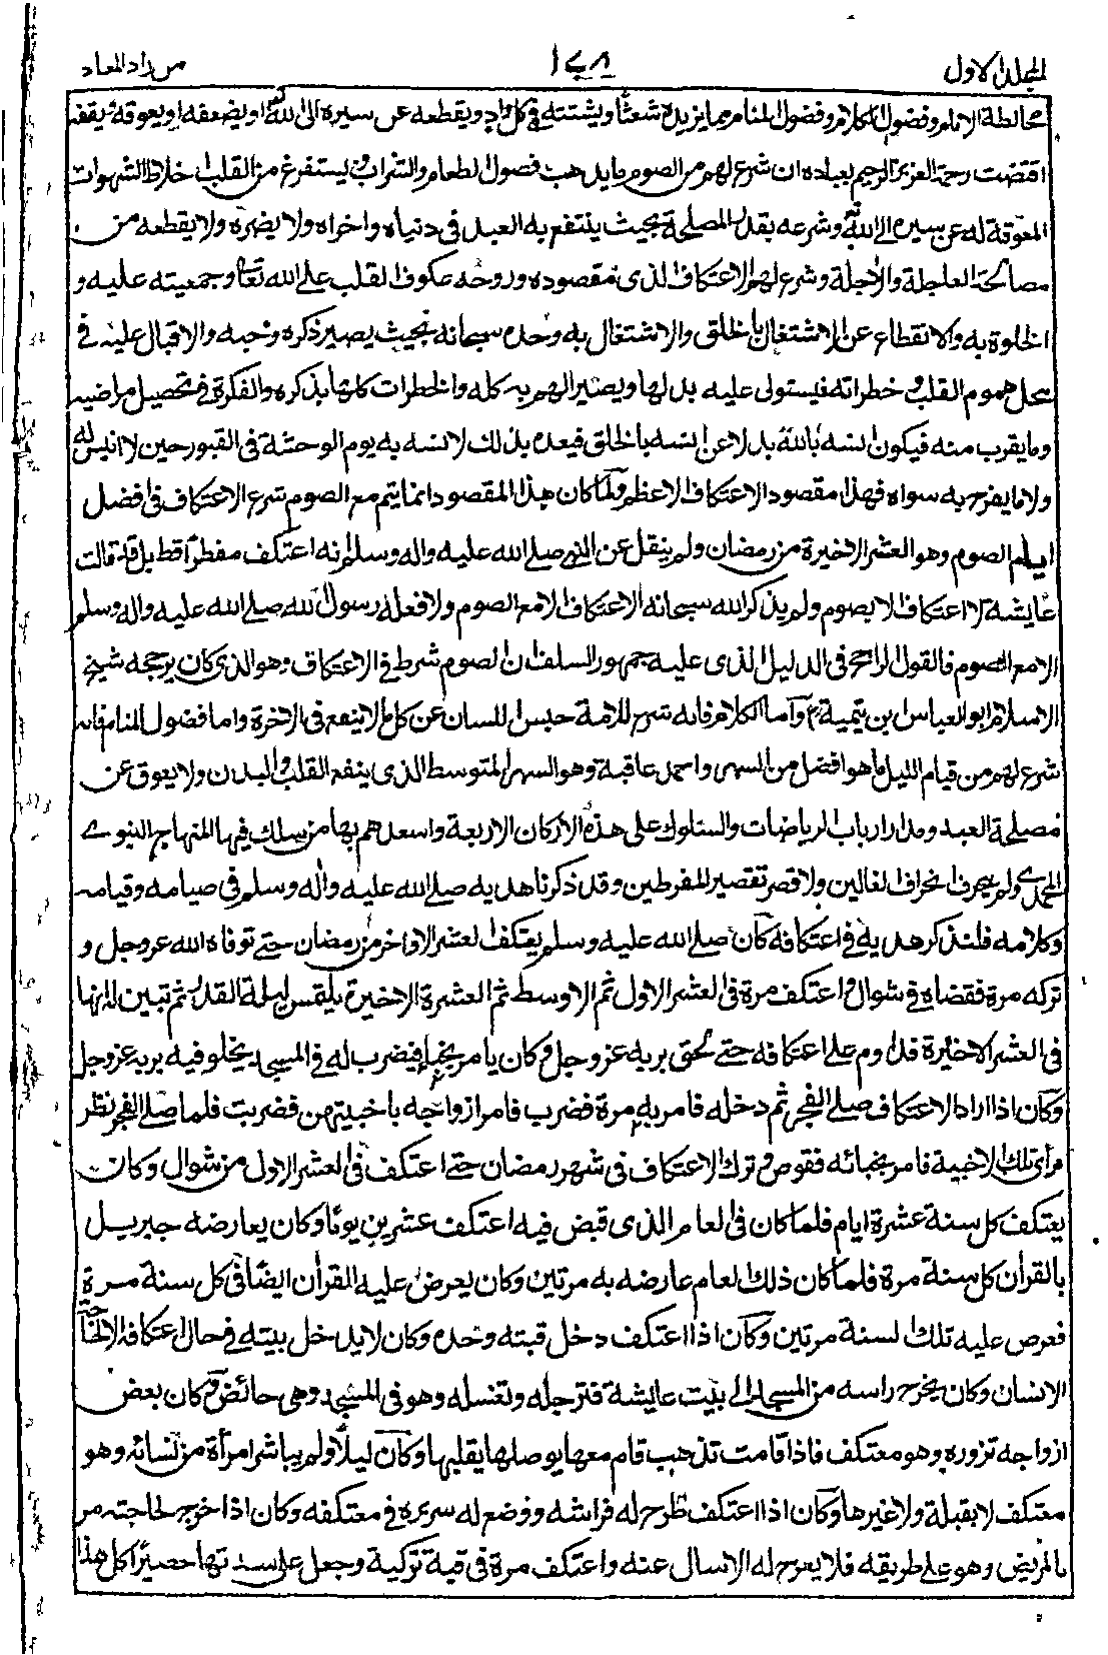 المجلد الاول
١٧٨
من زاد المعاد
مخالطة الانام وفضول الكلام وفضول المنام مما يزيده شعثا ويشتته فى كل واد ويقطعه عن سيره الى الله او يضعفه او يعوقه او يقفه
اقتضت رحمة العزيز الرحيم بعباده ان شرع لهم من الصوم ما يذهب فضول الطعام والشراب ويستفرغ من القلب اخلاط الشهوات
المعوقة له عن سيره الى الله وشرعه بقدر المصلحة بحيث ينتفع به العبد فى دنياه واخراه ولا يضره ولا يقطعه من
مصالحه العاجلة والاجلة وشرع لهم الاعتكاف الذى مقصوده وروحه عكوف القلب على الله تعالى وجمعيته عليه و
الخلوة به والانقطاع عن الاشتغال بالخلق والاشتغال به وحده سبحانه بحيث يصير ذكره وحبه والاقبال عليه فى
محل هموم القلب و خطراته فيستولى عليه بدلها ويصير الهم به كله والخطرات كلها بذكره والفكرة فى تحصيل مراضيه
وما يقرب منه فيكون انسه بالله بدلا عن انسه بالخلق فيعده بذلك لانسه به يوم الوحشة فى القبور حين لا انيس له
ولا ما يفرح به سواه فهذا مقصود الاعتكاف الاعظم ولما كان هذا المقصود انما يتم مع الصوم شرع الاعتكاف فى افضل
ايام الصوم وهو العشر الاخيرة من رمضان ولم ينقل عن النبى صلى الله عليه واله وسلم انه اعتكف مفطرا قط بل قد قالت
عايشة لا اعتكاف الا بصوم ولم يذكر الله سبحانه الاعتكاف الا مع الصوم ولا فعله رسول الله صلى الله عليه واله وسلم
الا مع الصوم فالقول الراجح فى الدليل الذى عليه جمهور السلف ان الصوم شرط فى الاعتكاف وهو الذى كان يرجحه شيخ
الاسلام ابو العباس بن تيمية واما الكلام فانه شرع للامة حبس اللسان عن كل ما لا ينفع فى الاخرة واما فضول المنام فانه
شرع لهم من قيام الليل ما هو افضل من السهر واحمد عاقبة وهو السهر المتوسط الذى ينفع القلب والبدن ولا يعوق عن
مصلحة العبد ومدار ارباب الرياضات والسلوك على هذه الاركان الاربعة واسعدهم بها من سلك فيها المنهاج النبوى
المحمدى ولم ينحرف انحراف الغالين ولا قصر تقصير المفرطين وقد ذكرنا هديه صلى الله عليه واله وسلم فى صيامه وقيامه
وكلامه فلنذكر هديه فى اعتكافه كان صلى الله عليه وسلم يعتكف العشر الاواخر من رمضان حتى توفاه الله عز وجل و
تركه مرة فقضاه فى شوال واعتكف مرة فى العشر الاول ثم الاوسط ثم العشرة الاخيرة يلتمس ليلة القدر ثم تبين له انها
فى العشر الاخيرة فداوم على اعتكافه حتى لحق بربه عز وجل وكان يامر بخباء فيضرب له فى المسجد يخلو فيه بربه عز وجل
وكان اذا اراد الاعتكاف صلى الفجر ثم دخله فامر به مرة فضرب فامر ازواجه باخبيتهن فضربت فلما صلى الفجر نظر
فرأى تلك الاخبية فامر بخبائه فقوض و ترك الاعتكاف فى شهر رمضان حتى اعتكف فى العشر الاول من شوال وكان
يعتكف كل سنة عشرة ايام فلما كان فى العام الذى قبض فيه اعتكف عشرين يوما وكان يعارضه جبريل
بالقرآن كل سنة مرة فلما كان ذلك العام عارضه به مرتين وكان يعرض عليه القرآن ايضا فى كل سنة مرة
فعرض عليه تلك السنة مرتين وكان اذا اعتكف دخل قبته وحده وكان لا يدخل بيته فى حال اعتكافه الا لحاجة
الانسان وكان يخرج راسه من المسجد الى بيت عايشة فترجله وتغسله وهو فى المسجد وهى حائض وكان بعض
ازواجه تزوره وهو معتكف فاذا قامت تذهب قام معها يوصلها يقلبها وكان ليلا ولم يباشر امرأة من نسائه وهو
معتكف لا بقبلة ولا غيرها وكان اذا اعتكف طرح له فراشه ووضع له سريره فى معتكفه وكان اذا خرج لحاجته مر
بالمريض وهو على طريقه فلا يعرج له الا سال عنه واعتكف مرة فى قبة تركية وجعل على سدتها حصيرا كل هذا